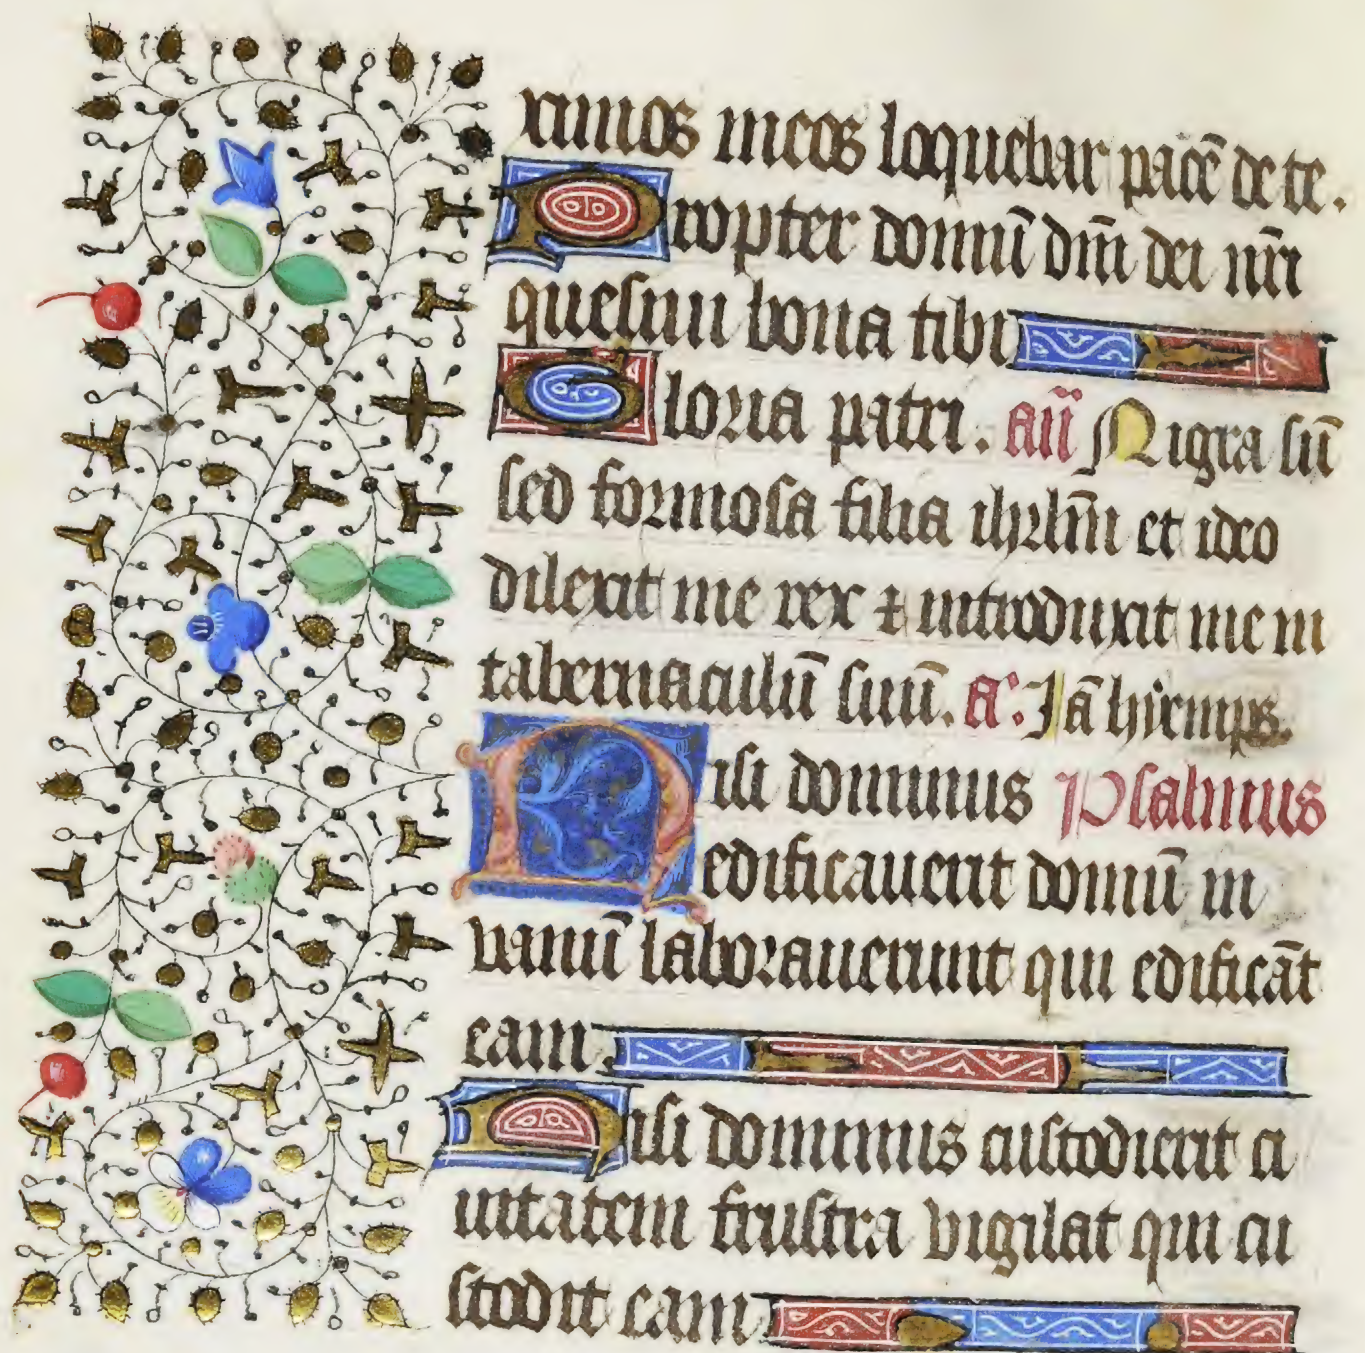 ximos meos loquebar pacē de te.
Propter domū dm̄ dei nr̄i
quesiui bona tibi
Gloria patri. an̄ Nigra sū
sed formosa filia ihrlm̄ et ideo
dilexit me rex ⁊ introduxit me in
tabernaculū suū. a'. Jā hyemps.
Nisi dominus Psalmus
edificauerit domū in
vanū laborauerunt qui edificāt
eam.
Nisi dominus custodierit ci
uitatem frustra vigilat qui cu
stodit eam